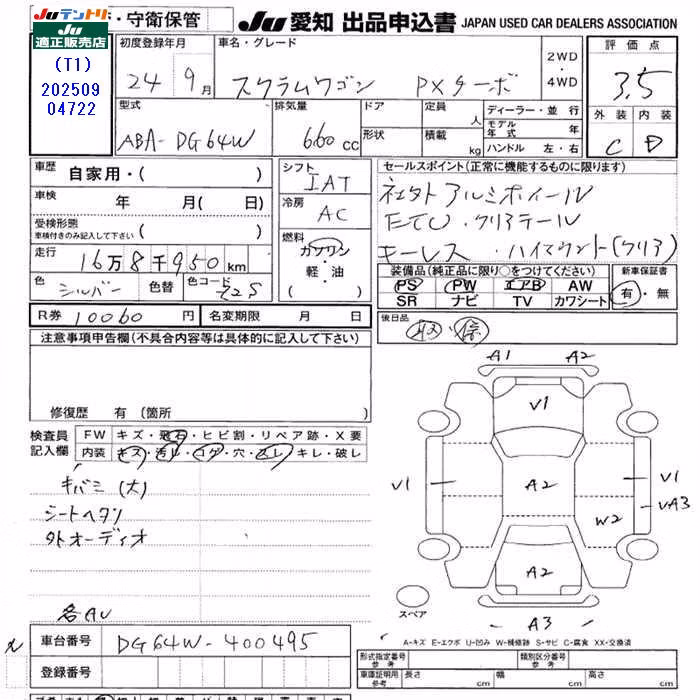 Juテントリ
Ju 適正販売店
(T1)
202509
04722
・守衛保管
Ju 愛知 出品申込書 JAPAN USED CAR DEALERS ASSOCIATION
初度登録年月 車名・グレード 2WD ・ 4WD 評価点
24 9月 スクラムワゴン PXターボ 3.5
型式 排気量 ドア 定員 人 ディーラー・並行 外装 内装
ABA-DG64W 660 cc 形状 積載 kg モデル年式 年 ハンドル 左・右 C D
車歴 自家用・( )
シフト IAT
セールスポイント(正常に機能するものに限ります)
車検 年 月( 日)
冷房 AC
社外アルミホイール
受検形態 車検付きのみ記入して下さい ( )
ETC・クリアテール
燃料 ガソリン 軽・油 ( )
キーレス・ハイマウント(クリア)
走行 16万8千950km
装備品(純正品に限り○をつけてください) 新車保証書
色 シルバー 色替 色コード Z2S
PS PW エアB AW 有・無
SR ナビ TV カワシート
R券 10060円 名変期限 月 日
後日品 取・保
注意事項申告欄(不具合内容等は具体的に記入して下さい)
修復歴 有(箇所
検査員記入欄 FW キズ・飛石・ヒビ割・リペア跡・X要
内装 キズ・汚レ・コゲ・穴・スレ・キレ・破レ
キバミ(大)
シートヘタリ
外オーディオ
各AU
A1 A2
V1
V1 A2 V1
VA3
W2
A2
スペア
A3
A-キズ E-エクボ U-凹み W-補修跡 S-サビ C-腐食 XX-交換済
車台番号 DG64W-400495
登録番号
形式指定番号 参考 類別区分番号 参考
車庫証明用 参考 長さ cm 幅 cm 高さ cm